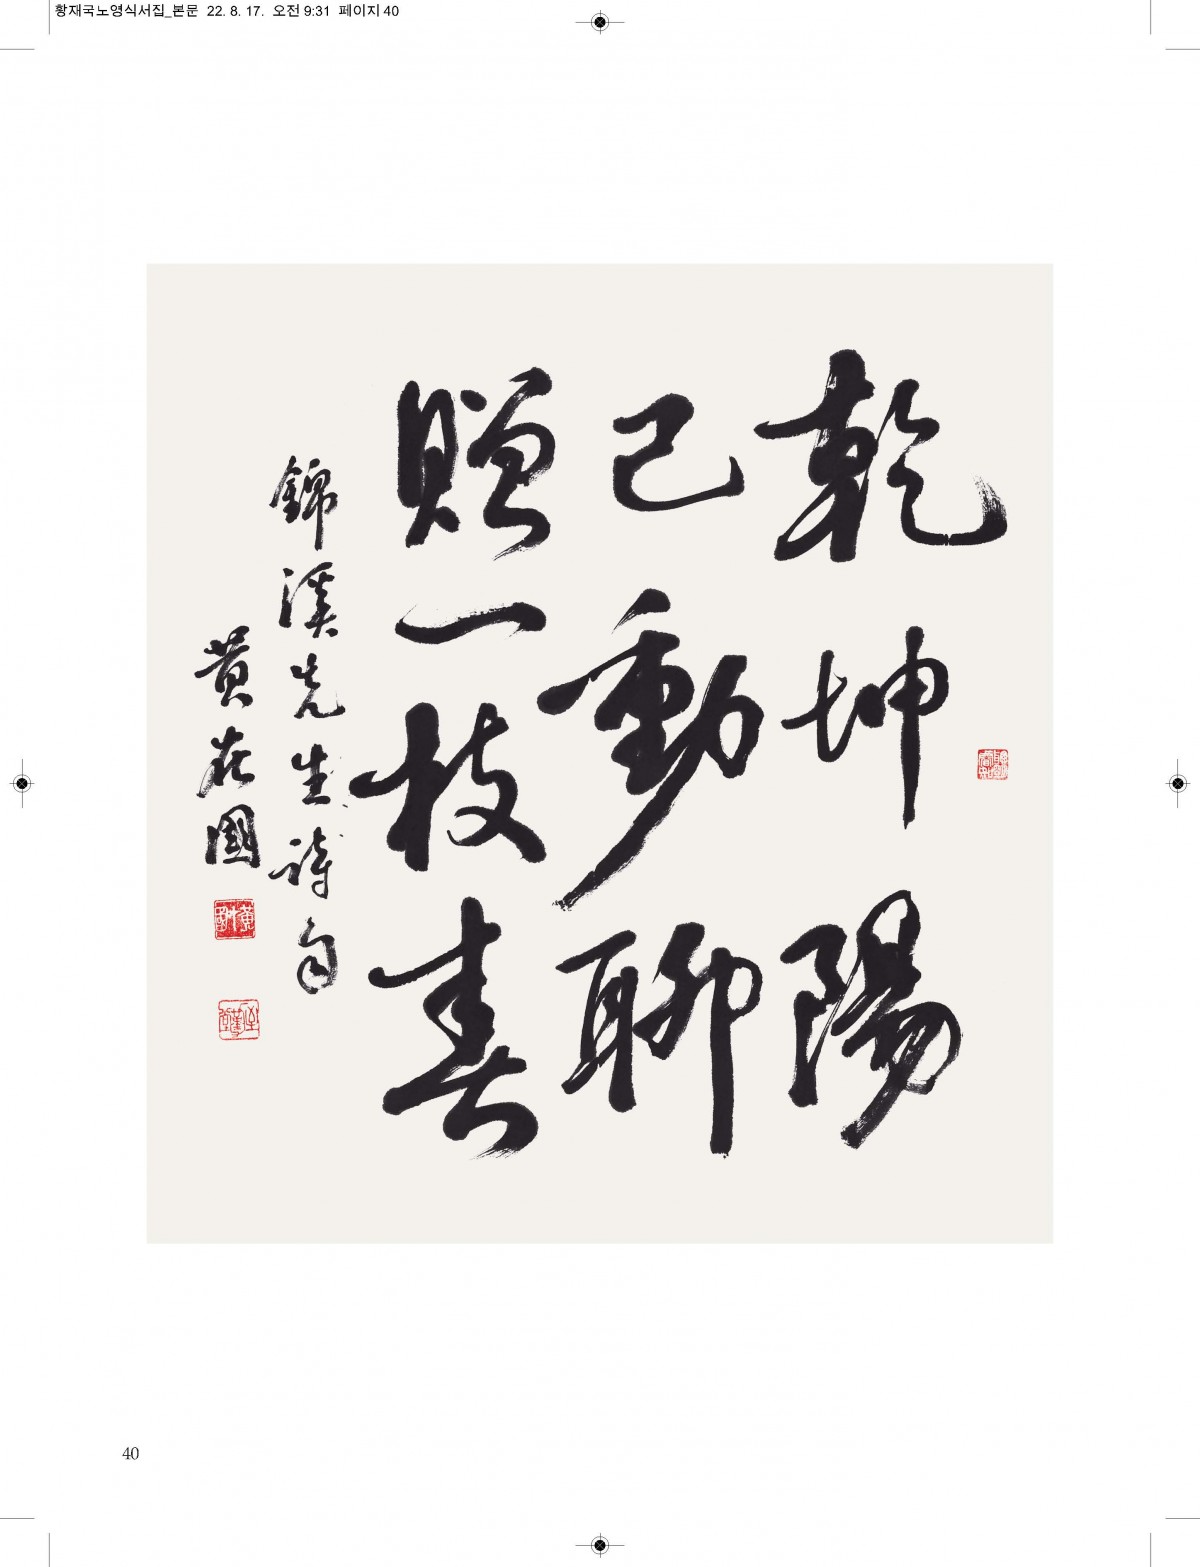 황재국노영식서집_본문 22. 8. 17. 오전 9:31 페이지 40
乾坤陽
已動聊
贈一枝春
錦溪先生詩句
黃在國
40